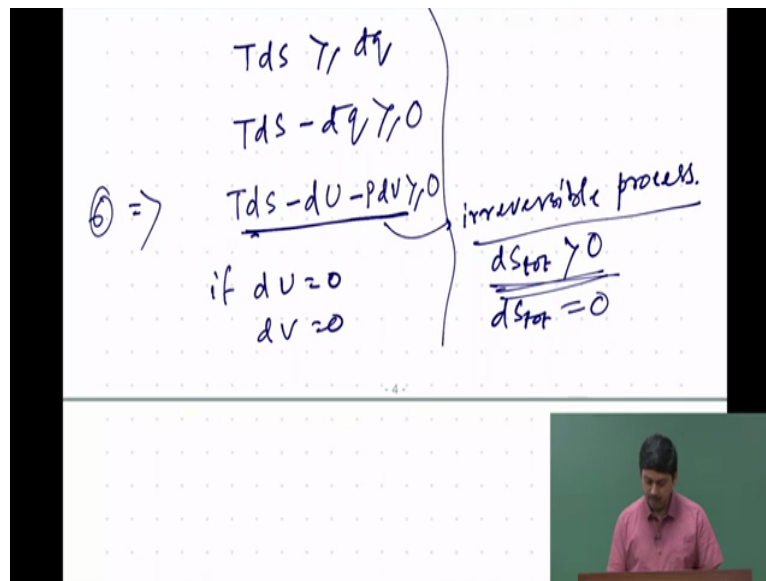 Tds ≥ đq
Tds - đq ≥ 0
⑥ ⇒ Tds - dU - PdV ≥ 0
if dU = 0
dV = 0
irreversible process.
dStot > 0
dStot = 0
- 4 -